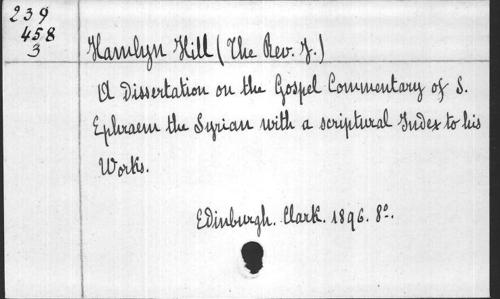 239
458
3
Hamlyn Hill (The Rev. J.)
A Dissertation on the Gospel Commentary of S.
Ephraem the Syrian with a scriptural Index to his
Works.
Edinburgh. Clark. 1896. 8º.